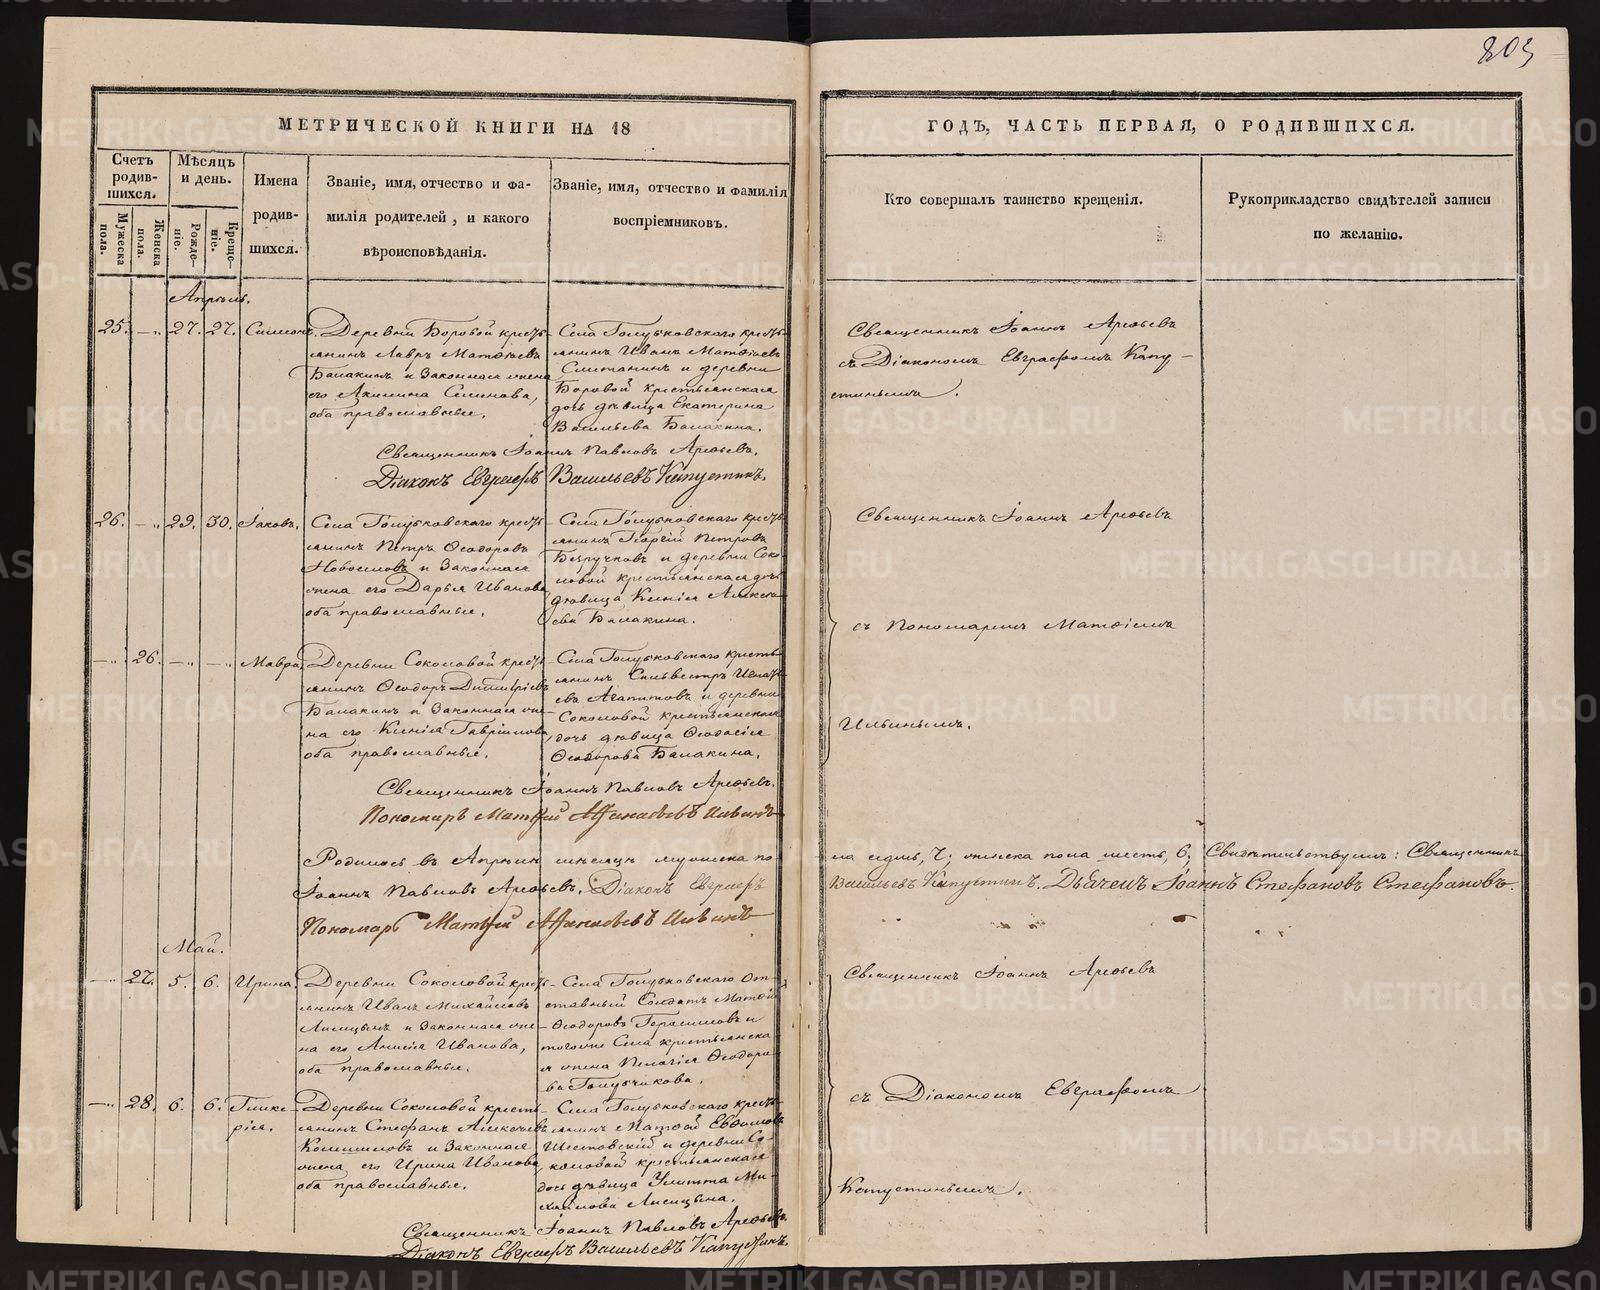 803
МЕТРИЧЕСКОЙ КНИГИ НА 18
ГОДЪ, ЧАСТЬ ПЕРВАЯ, О РОДИВШИХСЯ.
Счетъ родив-
шихся.
Мужеска пола.
Женска пола.
Мѣсяцъ и день.
Рожде-
ніе.
Креще-
ніе.
Имена
родив-
шихся.
Званіе, имя, отчество и фа-
милія родителей, и какого
вѣроисповѣданія.
Званіе, имя, отчество и фамилія
воспріемниковъ.
Кто совершалъ таинство крещенія.
Рукоприкладство свидѣтелей записи
по желанію.
Апрѣль.
25. 27. 27. Симеонъ.
Деревни Боровой кресть-
янинъ Лавръ Матѳіевъ
Балакинъ и Законная жена
его Акилина Семенова,
оба православные.
Села Голубковскаго кресть-
янинъ Иванъ Матѳіевъ
Сметанинъ и деревни
Боровой крестьянская
дочь дѣвица Екатерина
Васильева Балакина.
Священникъ Іоаннъ Арефьевъ
съ Діакономъ Евграфомъ Капу-
стинымъ.
Священникъ Іоаннъ Павловъ Арефьевъ.
Діаконъ Евграфъ Васильевъ Капустинъ.
26. 29. 30. Іаковъ.
Села Голубковскаго кресть-
янинъ Петръ Ѳеодоровъ
Новоселовъ и Законная
жена его Дарья Иванова
оба православные.
Села Голубковскаго кресть-
янинъ Георгій Петровъ
Безручковъ и деревни Соко-
ловой крестьянская дочь
дѣвица Ксенія Алексѣ-
ева Балакина.
Священникъ Іоаннъ Арефьевъ
съ Пономаремъ Матѳіемъ
Ильинымъ.
26. Мавра.
Деревни Соколовой кресть-
янинъ Ѳеодоръ Димитріевъ
Балакинъ и Законная же-
на его Ксенія Гавріилова,
оба православные.
Села Голубковскаго кресть-
янинъ Сильвестръ Игнать-
евъ Агапитовъ и деревни
Соколовой крестьянская
дочь дѣвица Ѳеодосія
Ѳеодорова Балакина.
Священникъ Іоаннъ Павловъ Арефьевъ.
Пономарь Матѳей Афанасьевъ Ильинъ
Родилось въ Апрѣлѣ мѣсяцѣ мужеска по-
ла седмь, 7; женска пола шесть, 6. Свидѣтельствуемъ: Священникъ
Іоаннъ Павловъ Арефьевъ. Діаконъ Евграфъ
Васильевъ Капустинъ. Дьячекъ Іоаннъ Стефановъ Стефановъ.
Пономарь Матѳей Афанасьевъ Ильинъ
Май.
27. 5. 6. Ирина.
Деревни Соколовой кресть-
янинъ Иванъ Михайловъ
Лисицынъ и Законная же-
на его Анисія Иванова,
оба православные.
Села Голубковскаго От-
ставный Солдатъ Матѳей
Ѳеодоровъ Герасимовъ и
тогоже Села крестьянска-
я жена Пелагія Ѳеодоро-
ва Голубчикова.
Священникъ Іоаннъ Арефьевъ
съ Діакономъ Евграфомъ
Капустинымъ.
28. 6. 6. Глике-
рія.
Деревни Соколовой кресть-
янинъ Стефанъ Алексѣевъ
и Законная
жена его Ирина Иванова,
оба православные.
Села Голубковскаго кресть-
янинъ Матѳей Евѳимовъ
Шестовскій и деревни Со-
коловой крестьянская
дочь дѣвица Улитта Ми-
хайлова Лисицына.
Священникъ Іоаннъ Павловъ Арефьевъ.
Діаконъ Евграфъ Васильевъ Капустинъ.
METRIKI.GASO-URAL.RU